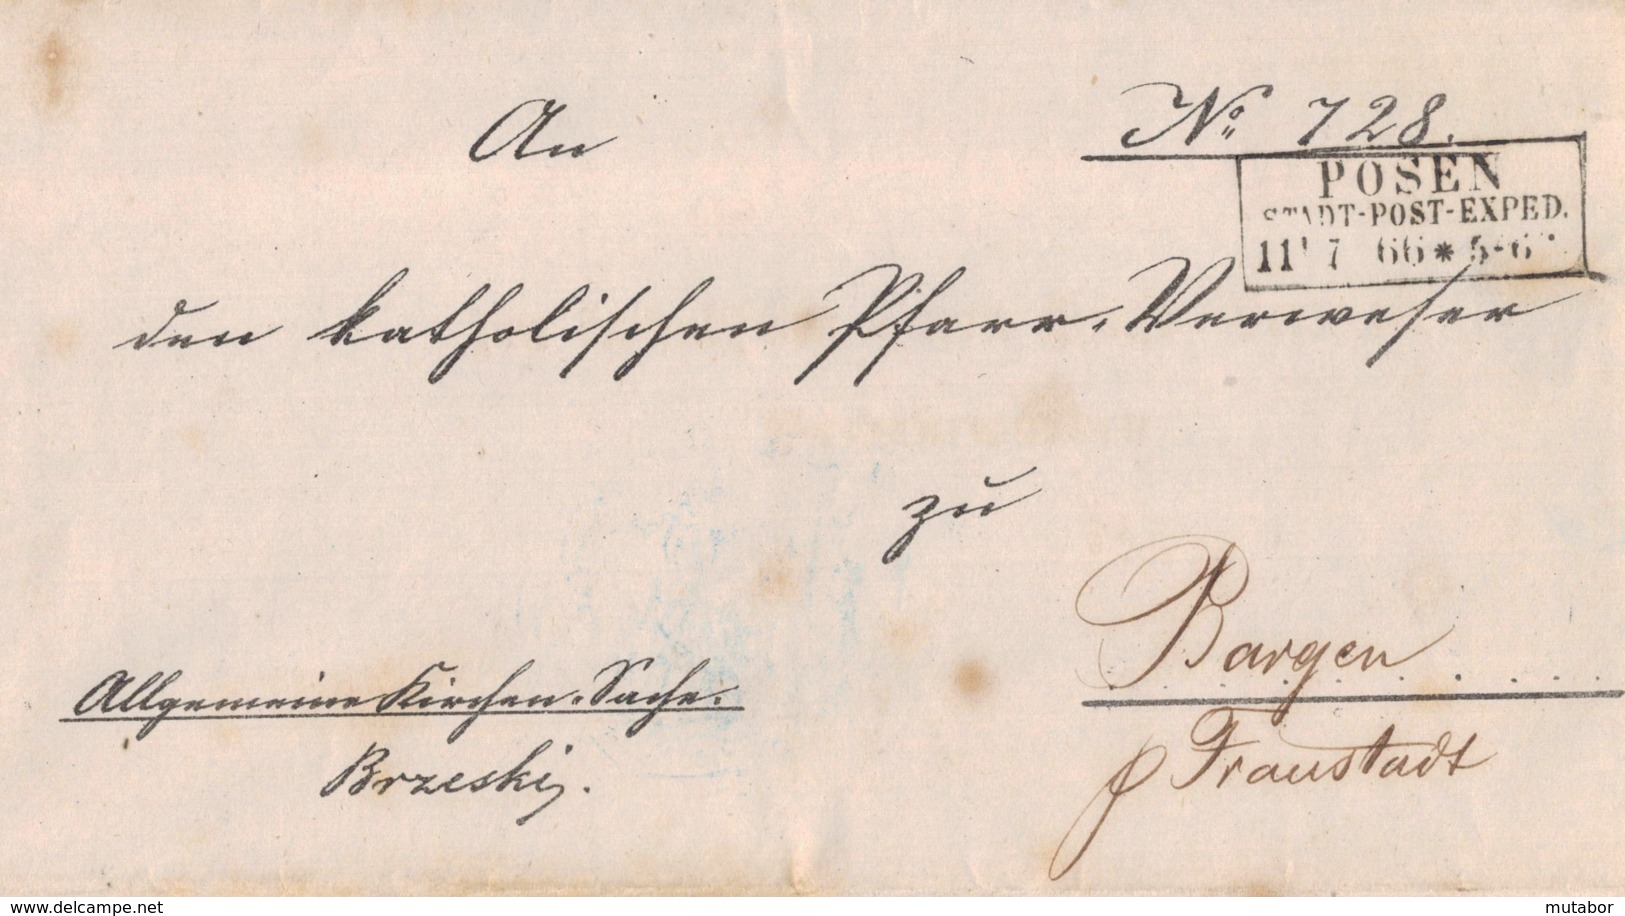 An
No 728.
POSEN
STADT-POST-EXPED.
11 7 66 * 5-6
den katholischen Pfarr-Verweser
zu
Bargen
p Fraustadt
Allgemeine Kirchen-Sache.
Brzeski.
www.delcampe.net
mutabor